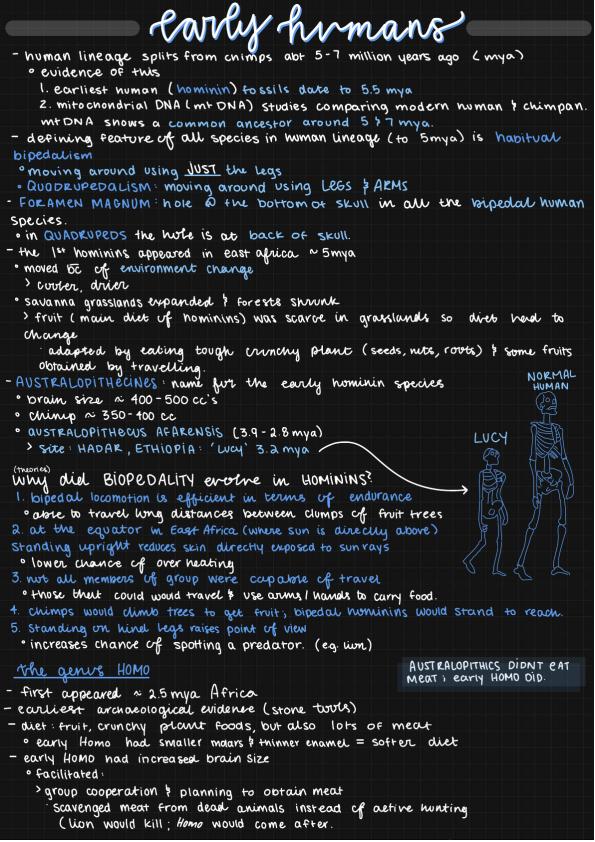 early humans
- human lineage splits from chimps abt 5-7 million years ago (mya)
° evidence of this
1. earliest human (hominin) fossils date to 5.5 mya
2. mitochondrial DNA (mt DNA) studies comparing modern human & chimpan.
mtDNA shows a common ancestor around 5 & 7 mya.
- defining feature of all species in human lineage (to 5mya) is habitual
bipedalism
° moving around using JUST the legs
° QUADRUPEDALISM: moving around using LEGS & ARMS
- FORAMEN MAGNUM: hole @ the bottom of skull in all the bipedal human
species.
° in QUADRUPEDS the hole is at back of skull.
- the 1st hominins appeared in east africa ~ 5mya
° moved bc of environment change
> cooler, drier
° savanna grasslands expanded & forests shrunk
> fruit (main diet of hominins) was scarce in grasslands so diet had to
change
· adapted by eating tough crunchy plant (seeds, nuts, roots) & some fruits
obtained by travelling.
- AUSTRALOPITHECINES: name for the early hominin species
° brain size ≈ 400-500 cc's
° chimp ~ 350-400 cc
° AUSTRALOPITHECUS AFARENSIS (3.9-2.8 mya)
> site: HADAR, ETHIOPIA: 'Lucy' 3.2 mya
NORMAL
HUMAN
LUCY
(theories)
why did BIOPEDALITY evolve in HOMININS?
1. bipedal locomotion is efficient in terms of endurance
° able to travel long distances between clumps of fruit trees
2. at the equator in East Africa (where sun is directly above)
standing upright reduces skin directly exposed to sun rays
° lower chance of over heating
3. not all members of group were capable of travel
° those that could would travel & use arms/hands to carry food.
4. chimps would climb trees to get fruit; bipedal hominins would stand to reach.
5. standing on hind legs raises point of view
° increases chance of spotting a predator. (eg. lion)
the genus HOMO
AUSTRALOPITHICS DIDNT EAT
MEAT; early HOMO DID.
- first appeared ~ 2.5 mya Africa
- earliest archaeological evidence (stone tools)
- diet: fruit, crunchy plant foods, but also lots of meat
° early Homo had smaller molars & thinner enamel = softer diet
- early HOMO had increased brain size
° facilitated:
> group cooperation & planning to obtain meat
· scavenged meat from dead animals instead of active hunting
(lion would kill; Homo would come after.